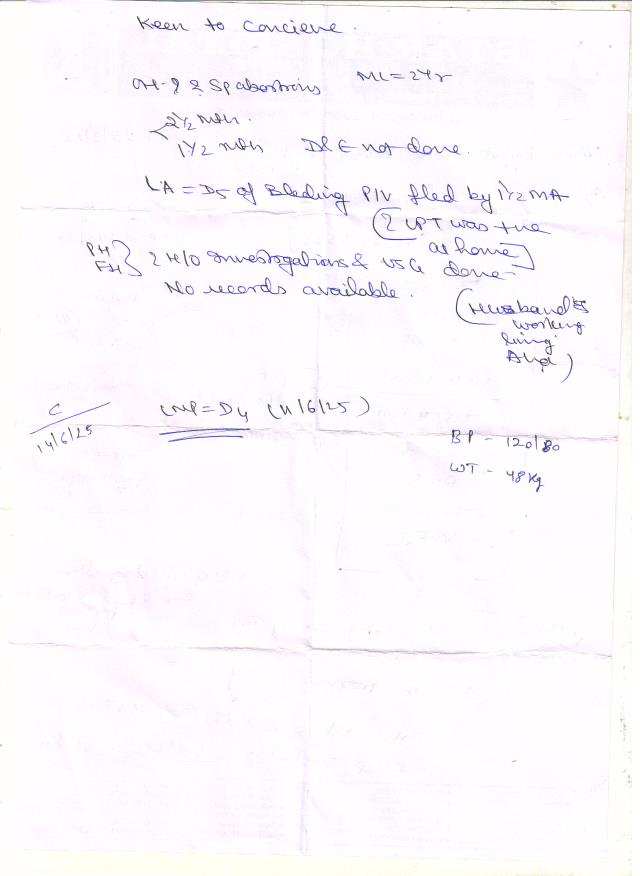 Keen to Concieve.
OH - 2 Sp abortions ML = 2Yr
2½ mth.
1½ mth D&E not done.
LA = D5 of Bleeding P/V flled by 1½ MA
(2 UPT was +ve
at home)
PH
FH } 2 H/O Investigations & USG done
No records available.
(Husband
working
living
Abd)
C
14/6/25
LMP = D4 (11/6/25)
BP - 120/80
WT - 48 Kg